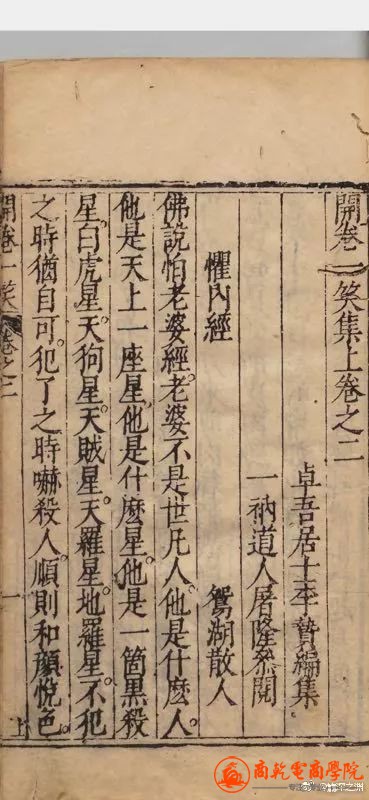 開卷一笑集上卷之二
卓吾居士李贄編集
一衲道人屠隆叅閱
懼內經　鴛湖散人
佛說怕老婆經。老婆不是世凡人。他是什麼人。
他是天上一座星。他是什麼星。他是一箇黑殺
星。白虎星。天狗星。天賊星。天羅星。地羅星。不犯
之時猶自可。犯了之時嚇殺人。順則和顏悅色。
開卷一笑 卷之二 一 上
商乾電商學院